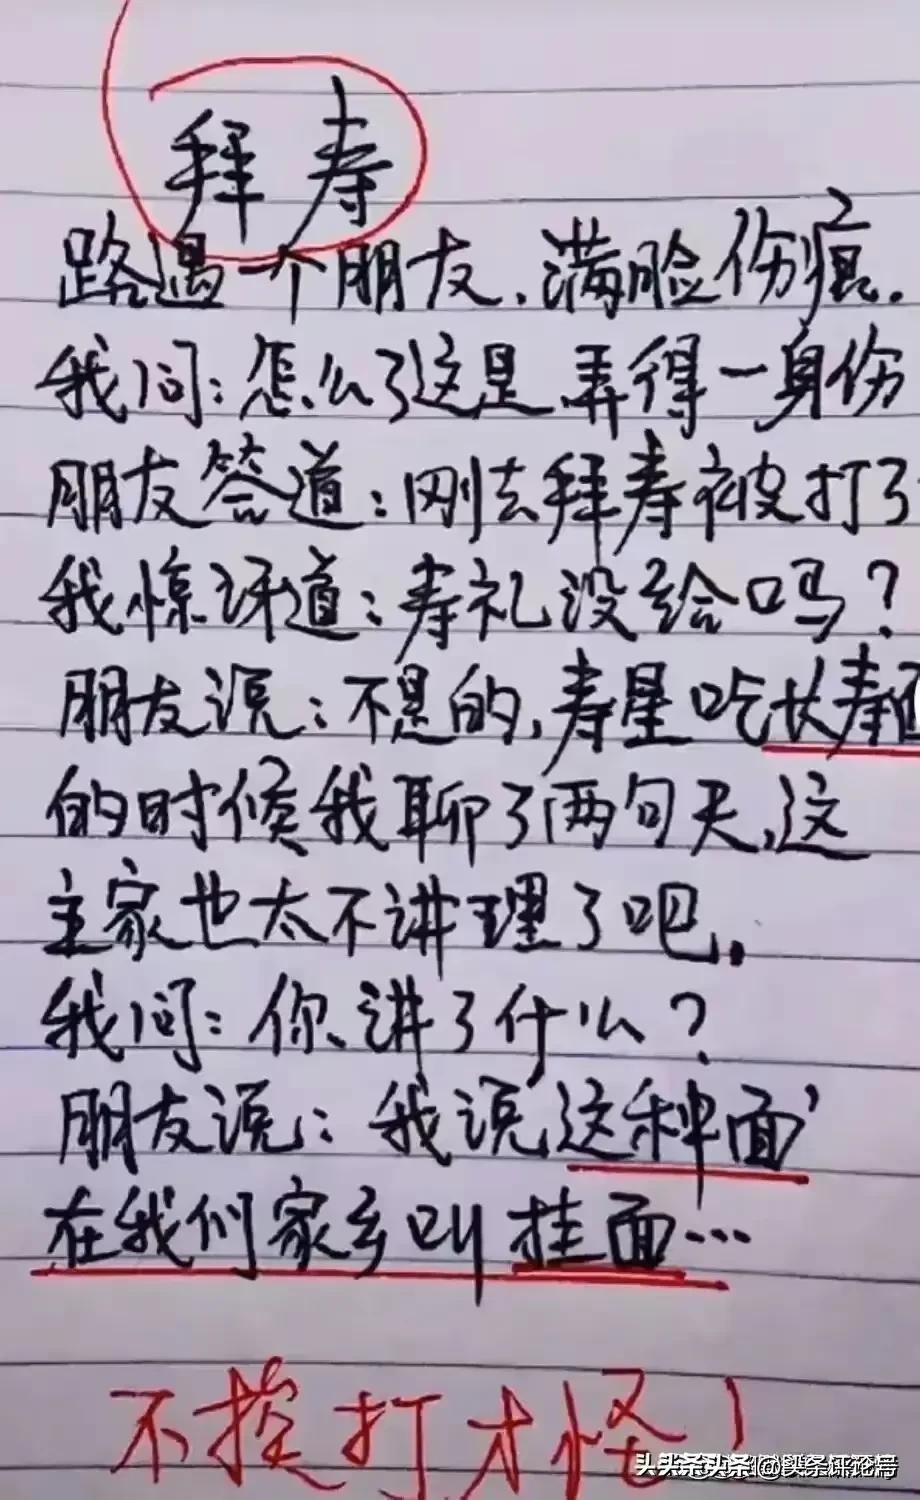 拜寿
路遇一个朋友,满脸伤痕。
我问:怎么了这是弄得一身伤
朋友答道:刚去拜寿被打了
我惊讶道:寿礼没给吗?
朋友说:不是的,寿星吃长寿面
的时候我聊了两句天,这
主家也太不讲理了吧。
我问:你讲了什么?
朋友说:我说这种面,
在我们家乡叫挂面…
不挨打才怪!
头条 @头条评论号